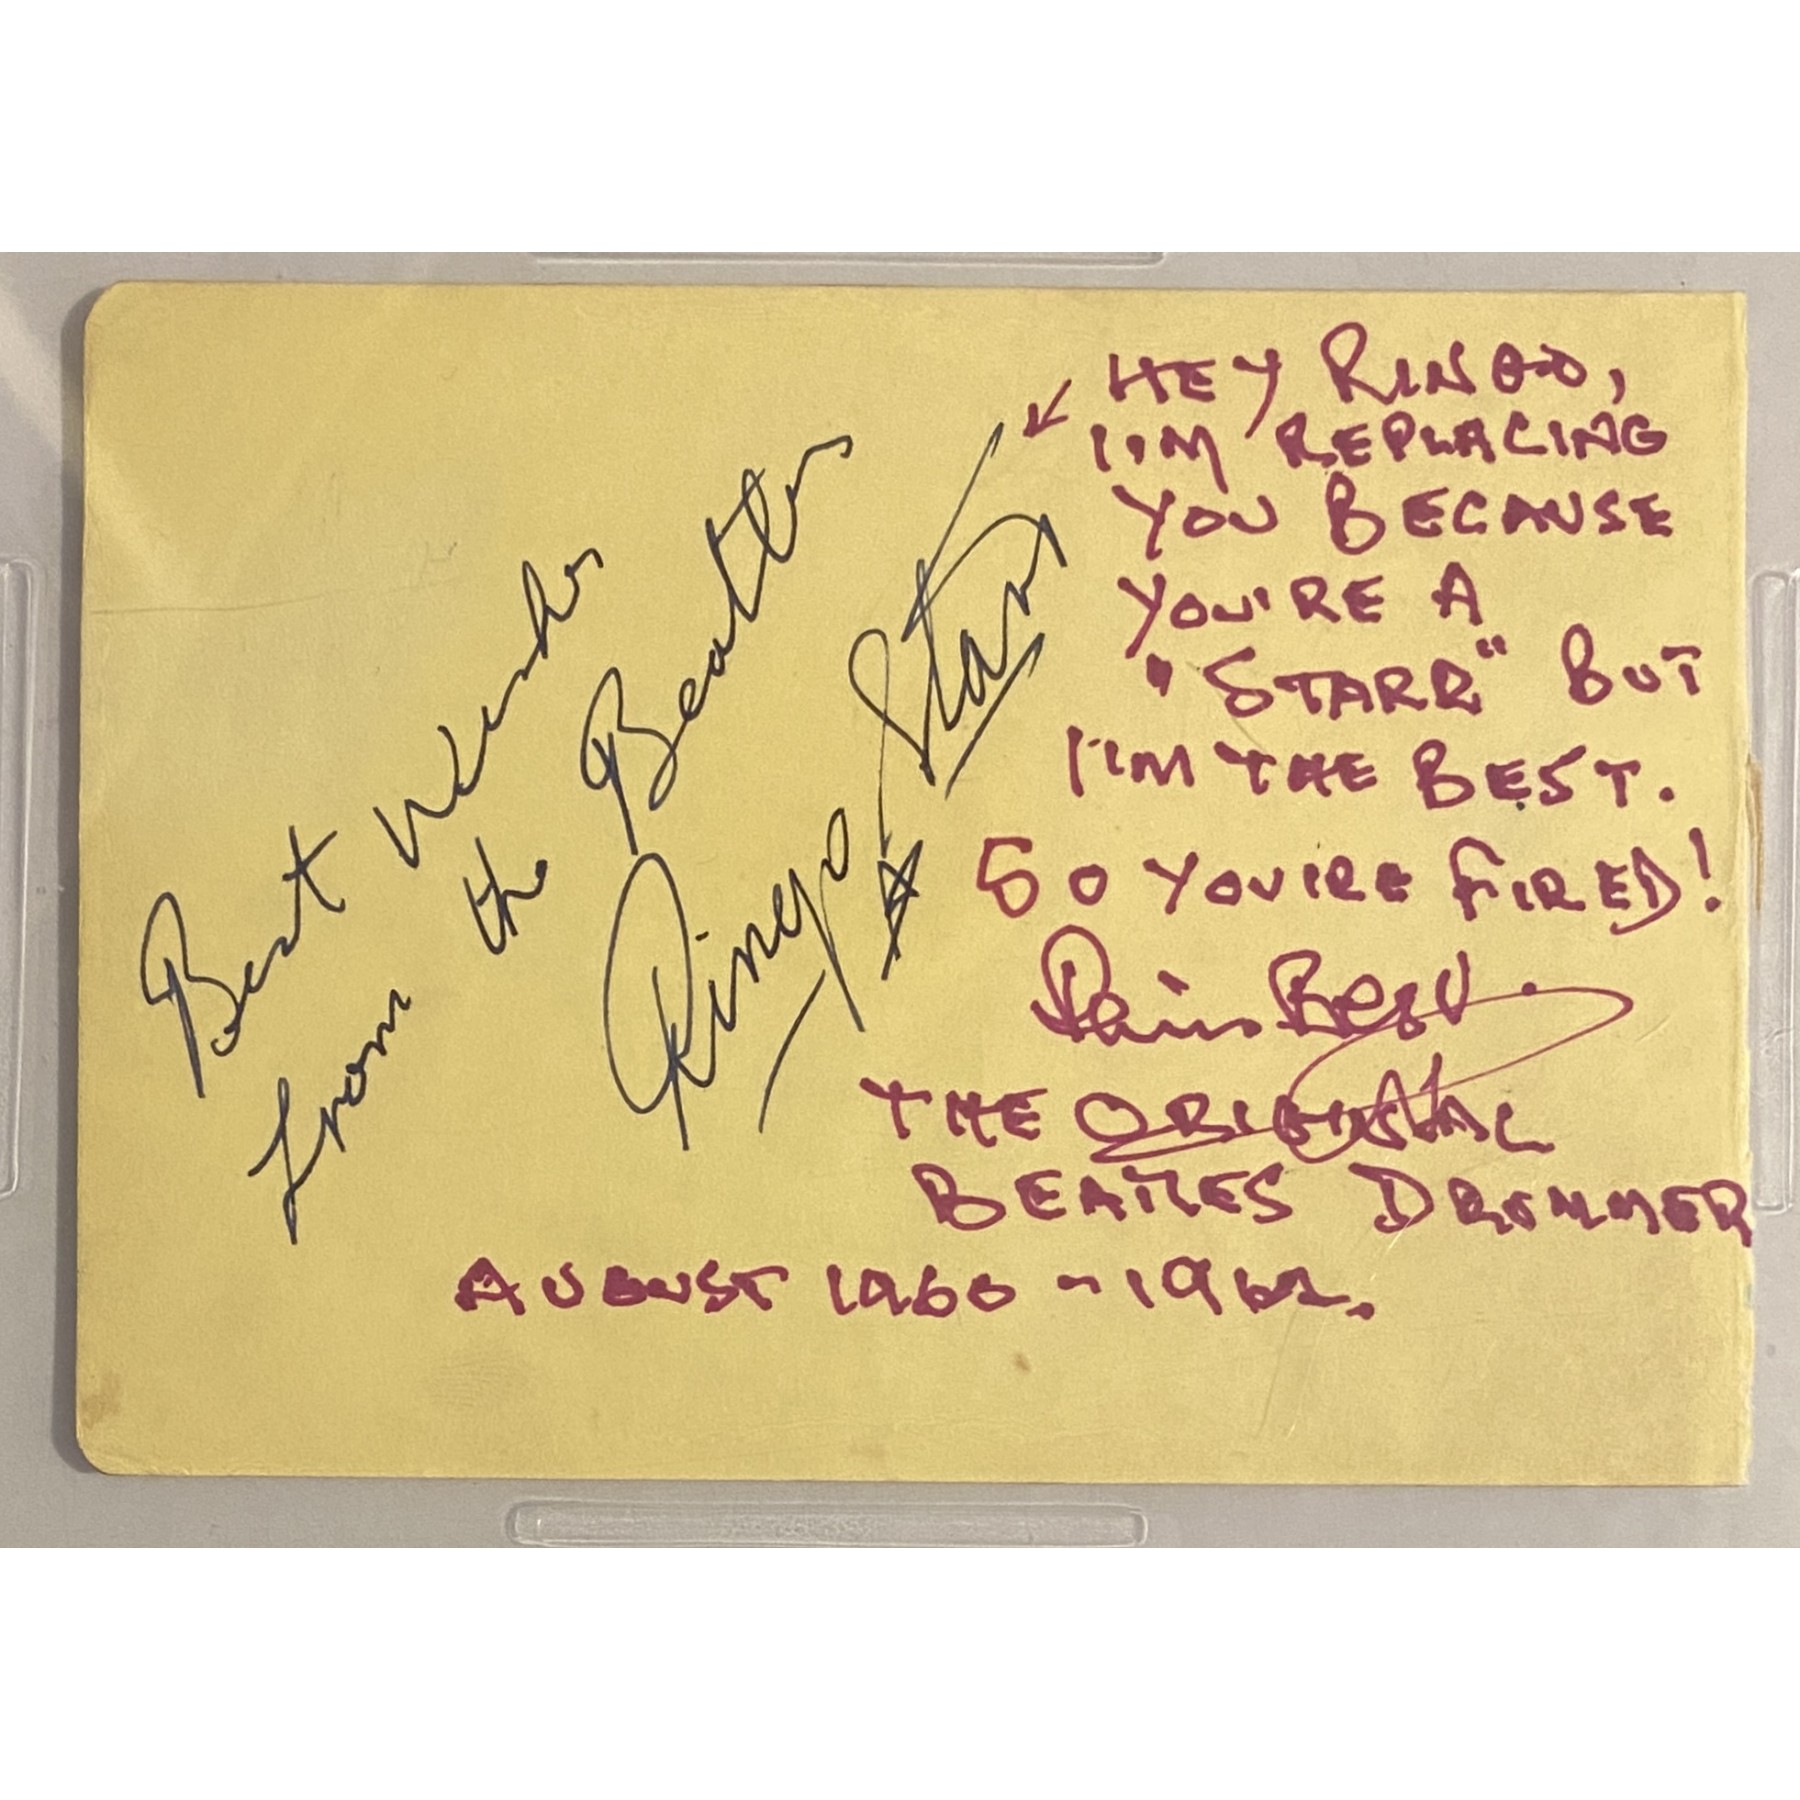 Best Wishes
from the Beatles
Ringo Starr
HEY RINGO,
I'M REPLACING
YOU BECAUSE
YOU'RE A
"STARR" BUT
I'M THE BEST.
SO YOU'RE FIRED!
Pete Best.
THE ORIGINAL
BEATLES DRUMMER
AUGUST 1960-1962.